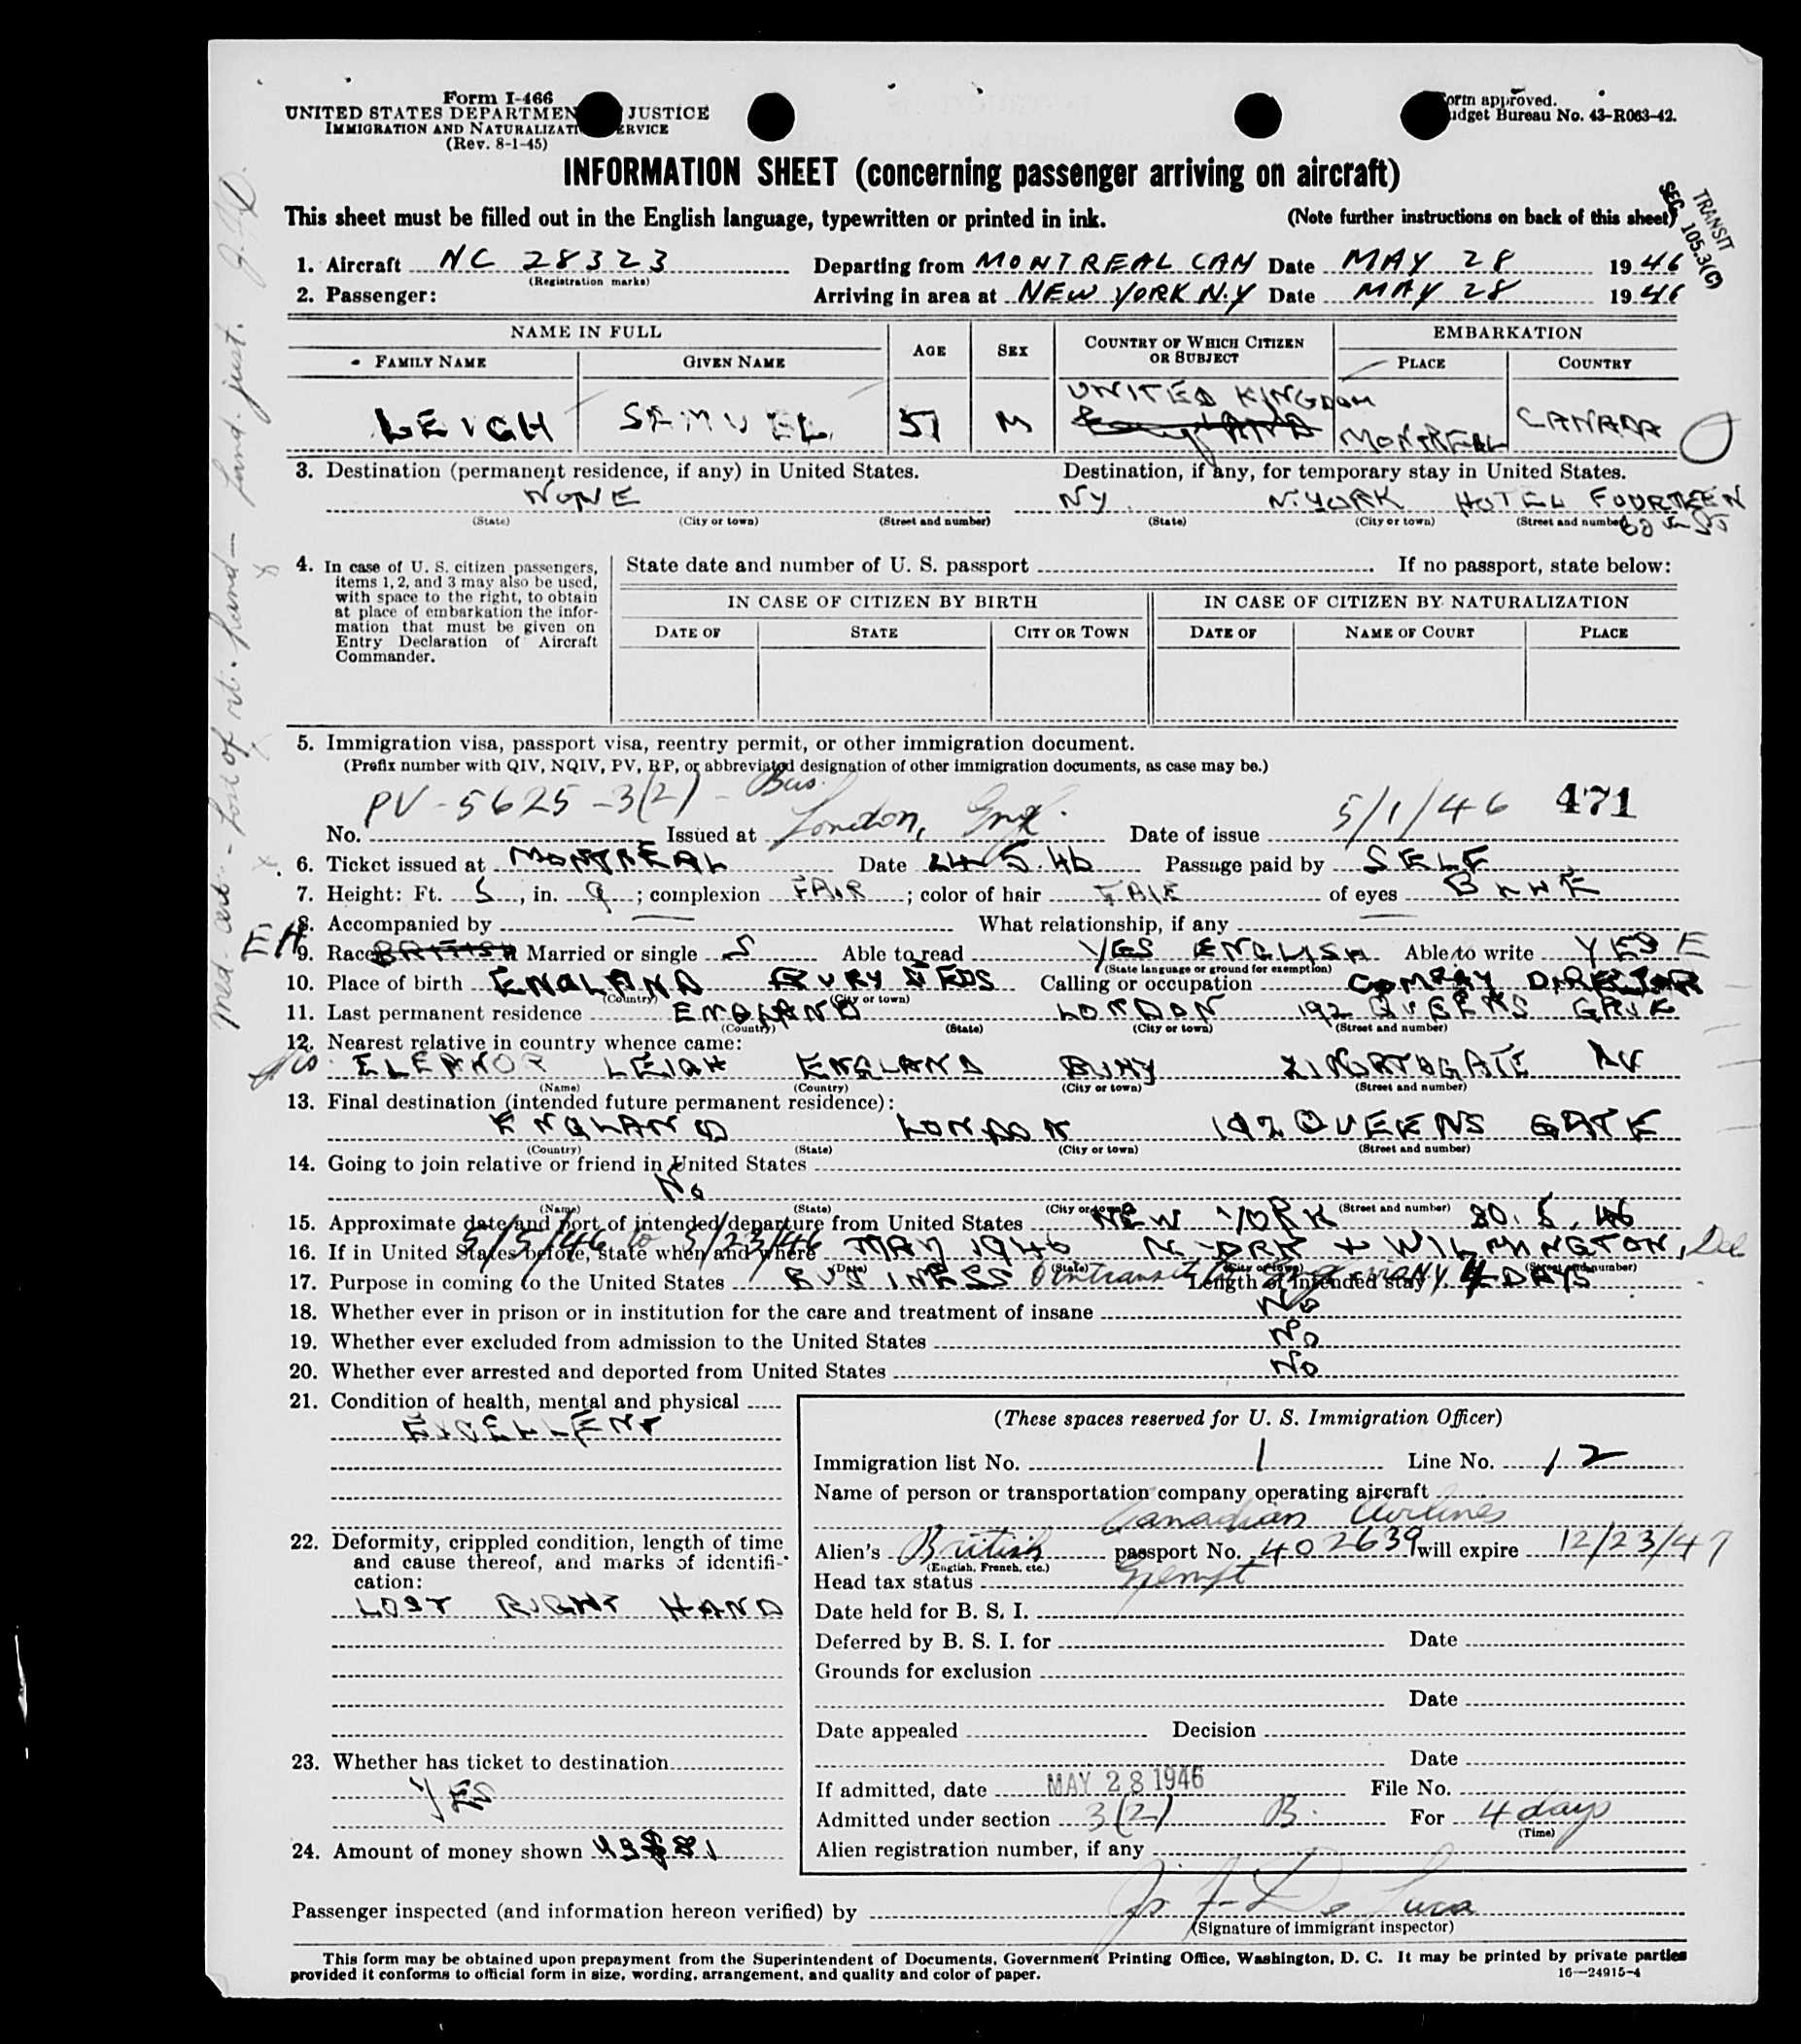 Form I-466
UNITED STATES DEPARTMEN JUSTICE
IMMIGRATION AND NATURALIZATI ERVICE
(Rev. 8-1-45)
orm approved.
udget Bureau No. 43-R063-42.
INFORMATION SHEET (concerning passenger arriving on aircraft)
This sheet must be filled out in the English language, typewritten or printed in ink. (Note further instructions on back of this sheet)
TRANSIT
SEC. 105.3(C)
1. Aircraft NC 28323 Departing from MONTREAL CAN Date MAY 28 1946
(Registration marks)
2. Passenger: Arriving in area at NEW YORK N.Y Date MAY 28 1946
NAME IN FULL AGE SEX COUNTRY OF WHICH CITIZEN OR SUBJECT EMBARKATION
FAMILY NAME GIVEN NAME PLACE COUNTRY
UNITED KINGDOM
LEIGH SAMUEL 51 M MONTREAL CANADA
3. Destination (permanent residence, if any) in United States. Destination, if any, for temporary stay in United States.
NONE NY N.YORK HOTEL FOURTEEN
(State) (City or town) (Street and number) (State) (City or town) (Street and number)
60 St
4. In case of U. S. citizen passengers, items 1, 2, and 3 may also be used, with space to the right, to obtain at place of embarkation the information that must be given on Entry Declaration of Aircraft Commander.
State date and number of U. S. passport If no passport, state below:
IN CASE OF CITIZEN BY BIRTH IN CASE OF CITIZEN BY NATURALIZATION
DATE OF STATE CITY OR TOWN DATE OF NAME OF COURT PLACE
5. Immigration visa, passport visa, reentry permit, or other immigration document.
(Prefix number with QIV, NQIV, PV, RP, or abbreviated designation of other immigration documents, as case may be.)
No. PV-5625-3(2) - Bus. Issued at London, Engl. Date of issue 5/1/46 471
6. Ticket issued at MONTREAL Date 24.5.46 Passage paid by SELF
7. Height: Ft. 5, in. 9; complexion FAIR; color of hair FAIR of eyes BLUE
8. Accompanied by — What relationship, if any —
EH
9. Race BRITISH Married or single S Able to read YES ENGLISH Able to write YES E
(State language or ground for exemption)
10. Place of birth ENGLAND BURY Calling or occupation COMPANY DIRECTOR
(Country) (City or town)
11. Last permanent residence ENGLAND LONDON 192 QUEENS GATE
(Country) (State) (City or town) (Street and number)
12. Nearest relative in country whence came:
ELEANOR LEIGH ENGLAND BURY
(Name) (Country) (City or town) (Street and number)
13. Final destination (intended future permanent residence):
ENGLAND LONDON 192 QUEENS GATE
(Country) (State) (City or town) (Street and number)
14. Going to join relative or friend in United States
No
(Name) (State) (City or town) (Street and number)
15. Approximate date and port of intended departure from United States NEW YORK 30.5.46
5/5/46 to 5/23/46
16. If in United States before, state when and where MAY 1946 N YORK + WILMINGTON, Del
(Date) (State) (City or town) (Street and number)
17. Purpose in coming to the United States BUSINESS intransit to Eng via NY Length of intended stay 4 DAYS
18. Whether ever in prison or in institution for the care and treatment of insane No
19. Whether ever excluded from admission to the United States No
20. Whether ever arrested and deported from United States No
21. Condition of health, mental and physical
EXCELLENT
22. Deformity, crippled condition, length of time and cause thereof, and marks of identification:
LOST RIGHT HAND
23. Whether has ticket to destination
YES
24. Amount of money shown
(These spaces reserved for U. S. Immigration Officer)
Immigration list No. 1 Line No. 12
Name of person or transportation company operating aircraft
Canadian Airlines
Alien's British passport No. 402639 will expire 12/23/47
(English, French, etc.)
Head tax status Exempt
Date held for B. S. I.
Deferred by B. S. I. for Date
Grounds for exclusion
Date
Date appealed Decision
Date
If admitted, date MAY 28 1946 File No.
Admitted under section 3(2) B. For 4 days
(Time)
Alien registration number, if any
Passenger inspected (and information hereon verified) by De Luca
(Signature of immigrant inspector)
This form may be obtained upon prepayment from the Superintendent of Documents, Government Printing Office, Washington, D. C. It may be printed by private parties
provided it conforms to official form in size, wording, arrangement, and quality and color of paper.
16—24915-4